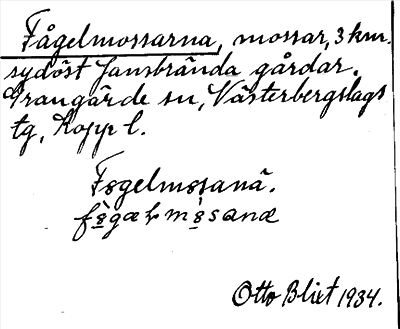 Fågelmossarna, mossar, 3 km.
sydöst Jansbrända gårdar.
Grangärde sn, Västerbergslags
tg, Kopp l.
Føgelmøsanä.
Otto Blixt 1934.